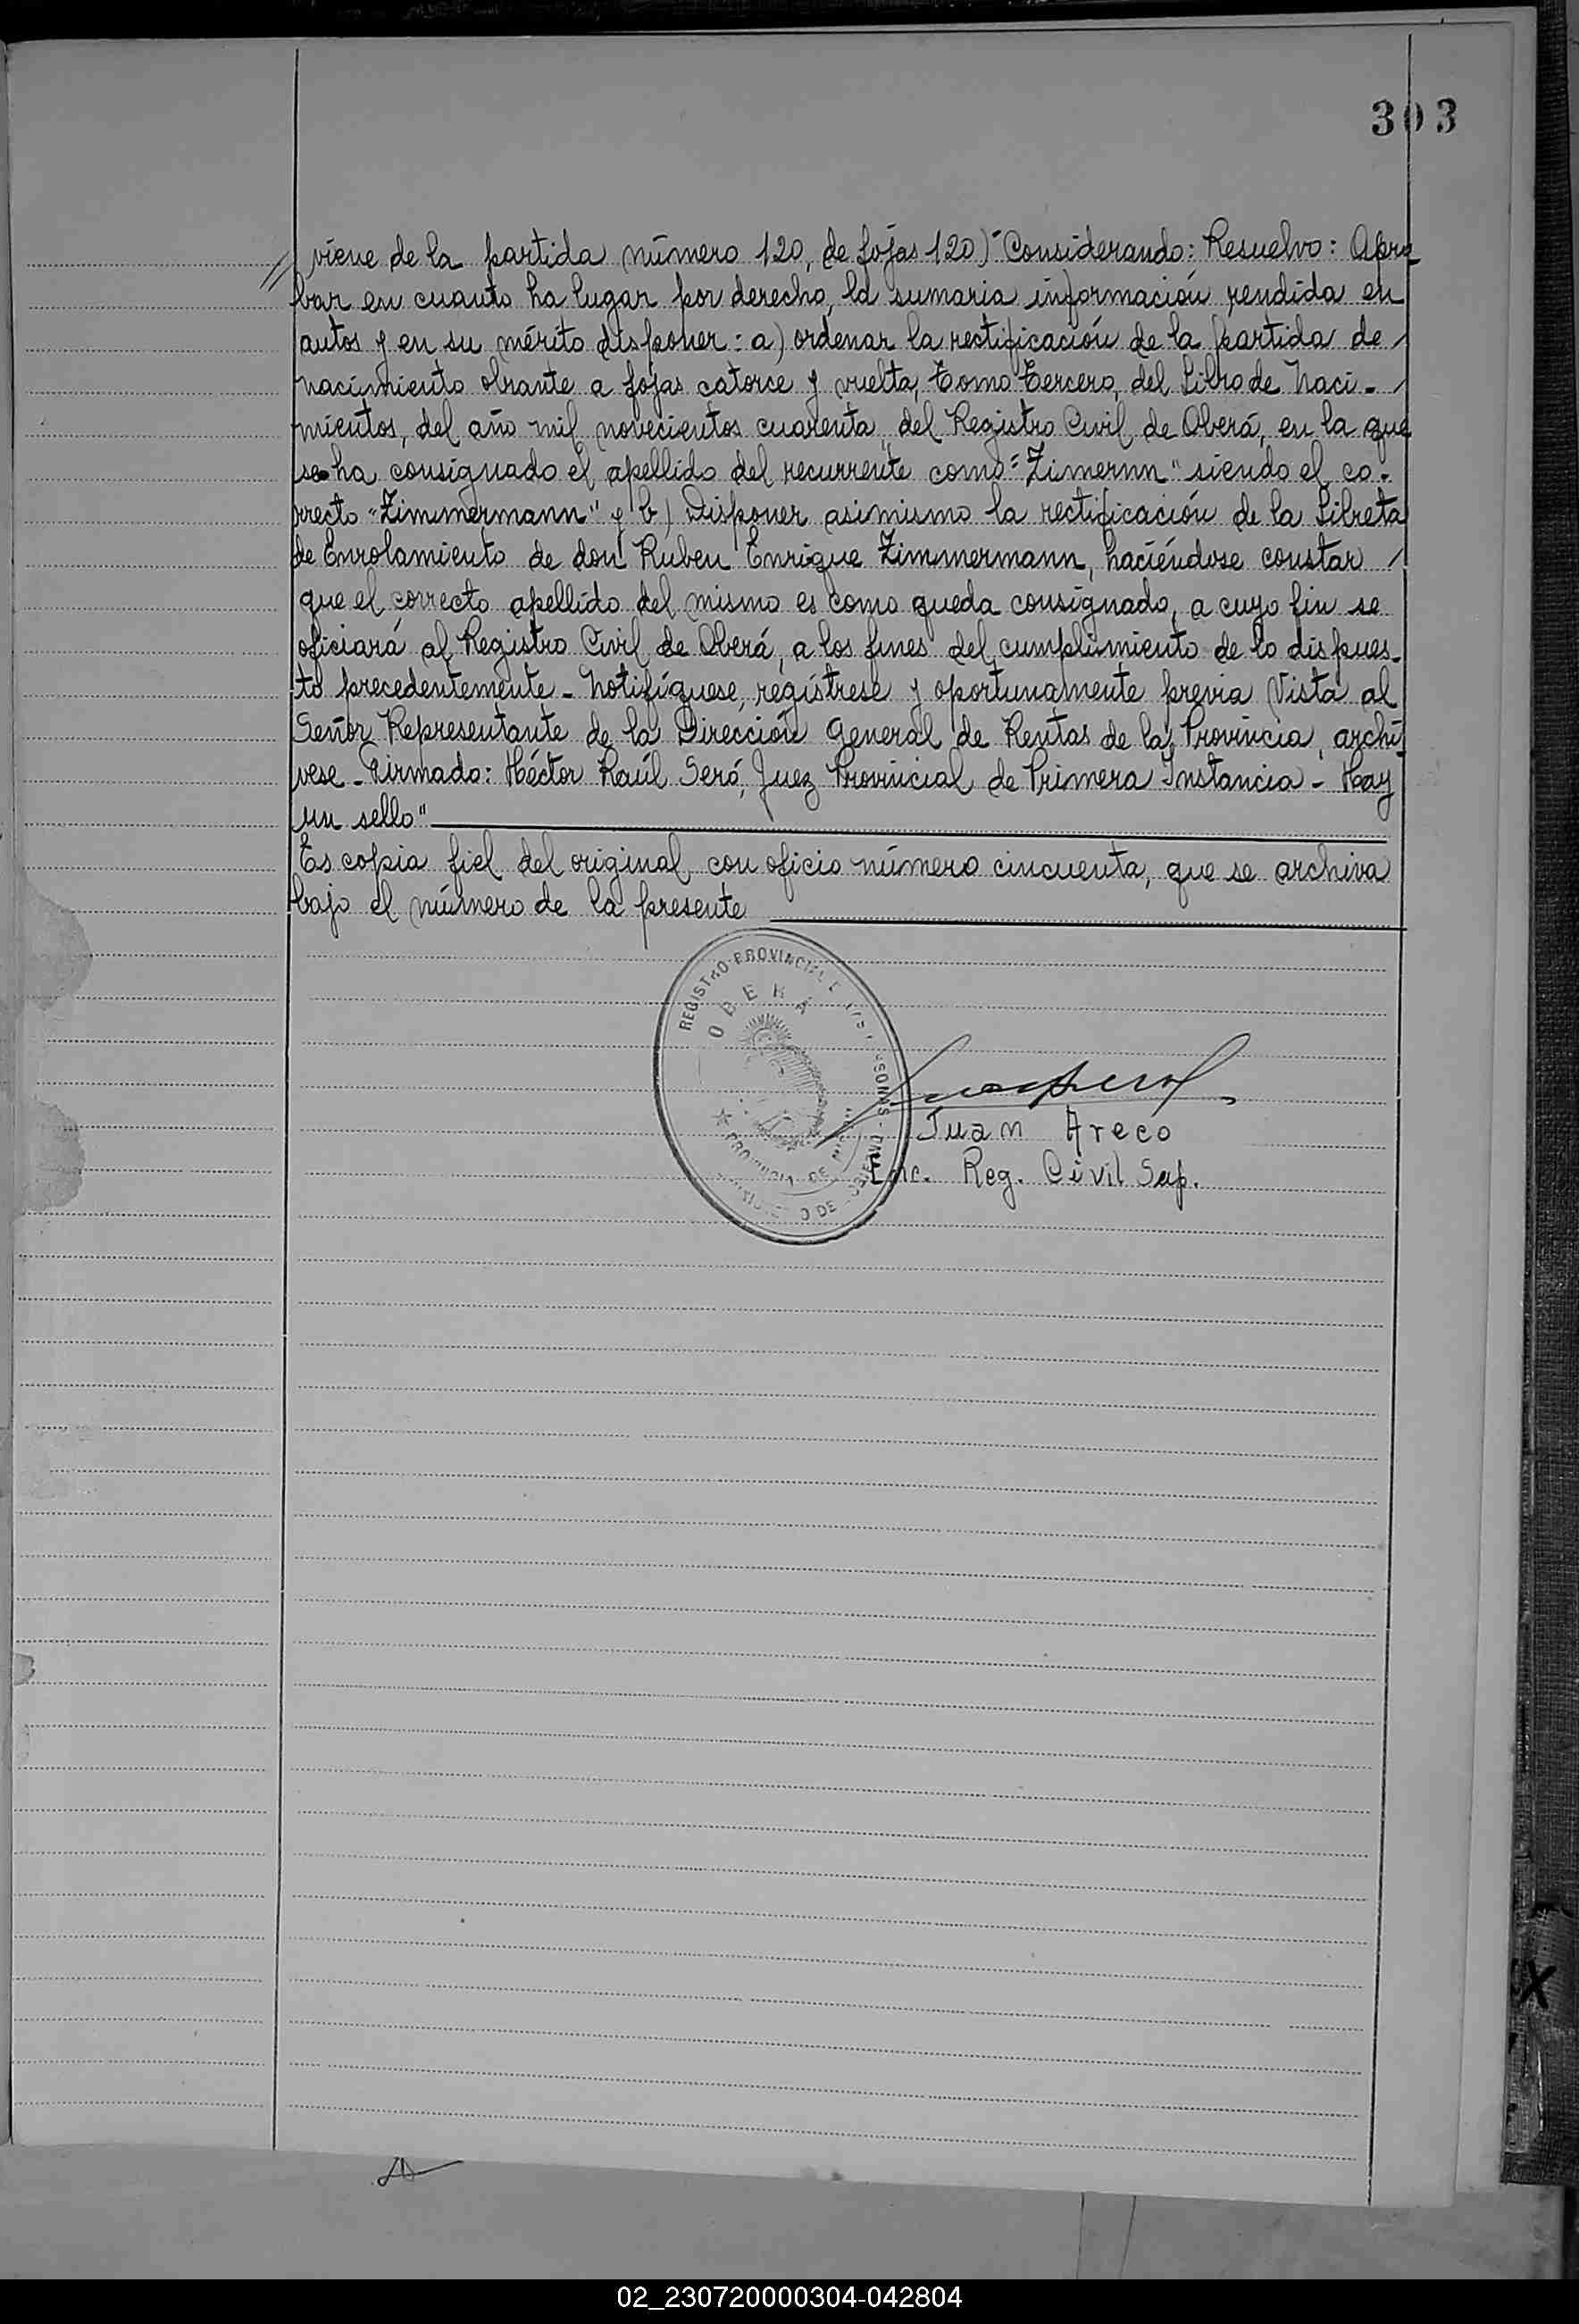 303
// viene de la partida número 120, de fojas 120)-"Considerando: Resuelvo: Apro-
bar en cuanto ha lugar por derecho, la sumaria información rendida en
autos y en su mérito disponer: a) ordenar la rectificación de la partida de /
nacimiento obrante a fojas catorce y vuelta, Tomo Tercero, del Libro de Naci- /
mientos, del año mil novecientos cuarenta, del Registro Civil de Oberá, en la que
se ha consignado el apellido del recurrente como "Zimernn" siendo el co-
rrecto "Zimmermann" y b) Disponer asimismo la rectificación de la Libreta
de Enrolamiento de don Ruben Enrique Zimmermann, haciéndose constar /
que el correcto apellido del mismo es como queda consignado, a cuyo fin se
oficiará al Registro Civil de Oberá, a los fines del cumplimiento de lo dispues-
to precedentemente - Notifíquese, regístrese y oportunamente previa Vista al
Señor Representante de la Dirección General de Rentas de la Provincia, archí-
vese - Firmado: Héctor Raúl Seró, Juez Provincial de Primera Instancia - Hay
un sello"
Es copia fiel del original con oficio número cincuenta, que se archiva
bajo el número de la presente
REGISTRO PROVINCIAL
OBERÁ
PROVINCIA DE
Juan Areco
Enc. Reg. Civil Sup.
02_230720000304-042804